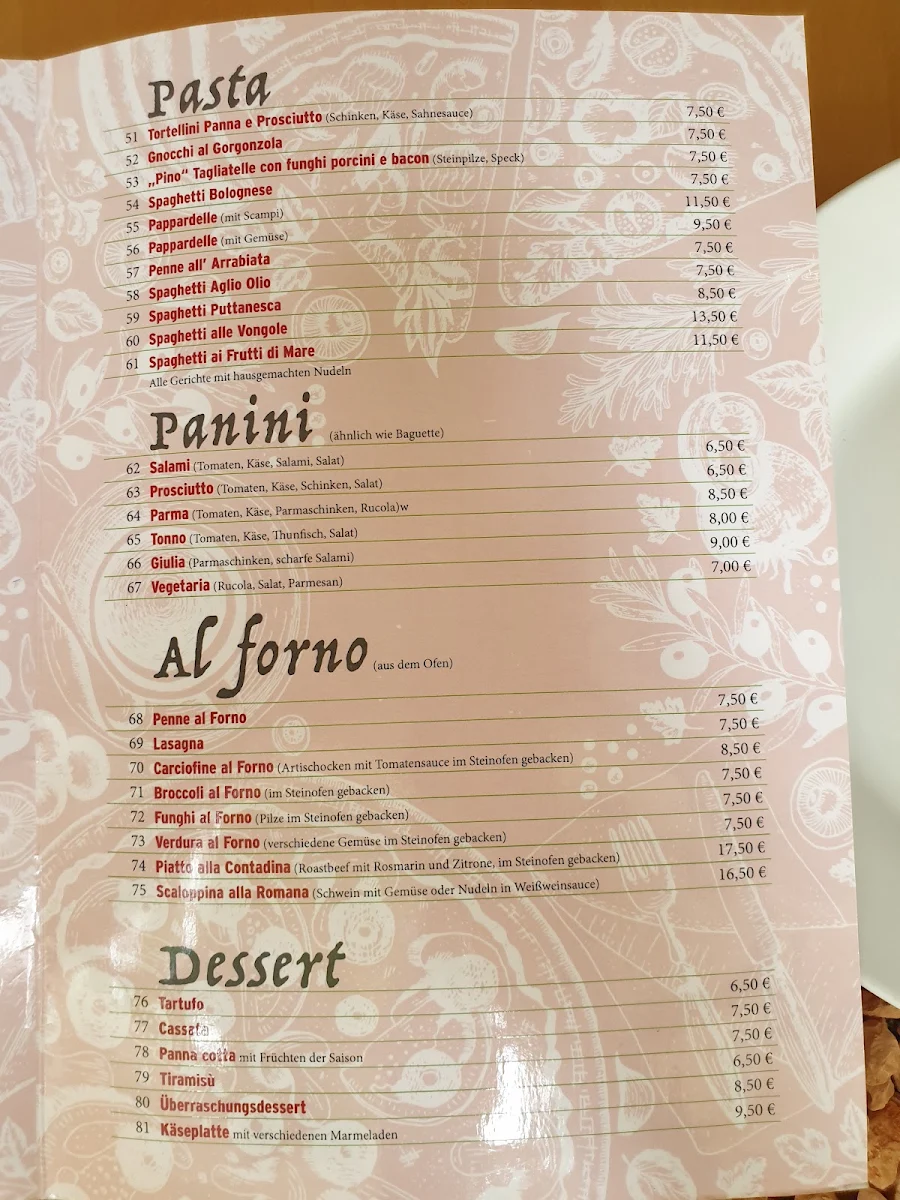 Pasta
51 Tortellini Panna e Prosciutto (Schinken, Käse, Sahnesauce) 7,50 €
52 Gnocchi al Gorgonzola 7,50 €
53 „Pino“ Tagliatelle con funghi porcini e bacon (Steinpilze, Speck) 7,50 €
54 Spaghetti Bolognese 7,50 €
55 Pappardelle (mit Scampi) 11,50 €
56 Pappardelle (mit Gemüse) 9,50 €
57 Penne all’ Arrabiata 7,50 €
58 Spaghetti Aglio Olio 7,50 €
59 Spaghetti Puttanesca 8,50 €
60 Spaghetti alle Vongole 13,50 €
61 Spaghetti ai Frutti di Mare 11,50 €
Alle Gerichte mit hausgemachten Nudeln
Panini (ähnlich wie Baguette)
62 Salami (Tomaten, Käse, Salami, Salat) 6,50 €
63 Prosciutto (Tomaten, Käse, Schinken, Salat) 6,50 €
64 Parma (Tomaten, Käse, Parmaschinken, Rucola)w 8,50 €
65 Tonno (Tomaten, Käse, Thunfisch, Salat) 8,00 €
66 Giulia (Parmaschinken, scharfe Salami) 9,00 €
67 Vegetaria (Rucola, Salat, Parmesan) 7,00 €
Al forno (aus dem Ofen)
68 Penne al Forno 7,50 €
69 Lasagna 7,50 €
70 Carciofine al Forno (Artischocken mit Tomatensauce im Steinofen gebacken) 8,50 €
71 Broccoli al Forno (im Steinofen gebacken) 7,50 €
72 Funghi al Forno (Pilze im Steinofen gebacken) 7,50 €
73 Verdura al Forno (verschiedene Gemüse im Steinofen gebacken) 7,50 €
74 Piatto alla Contadina (Roastbeef mit Rosmarin und Zitrone, im Steinofen gebacken) 17,50 €
75 Scaloppina alla Romana (Schwein mit Gemüse oder Nudeln in Weißweinsauce) 16,50 €
Dessert
76 Tartufo 6,50 €
77 Cassata 7,50 €
78 Panna cotta mit Früchten der Saison 7,50 €
79 Tiramisù 6,50 €
80 Überraschungsdessert 8,50 €
81 Käseplatte mit verschiedenen Marmeladen 9,50 €